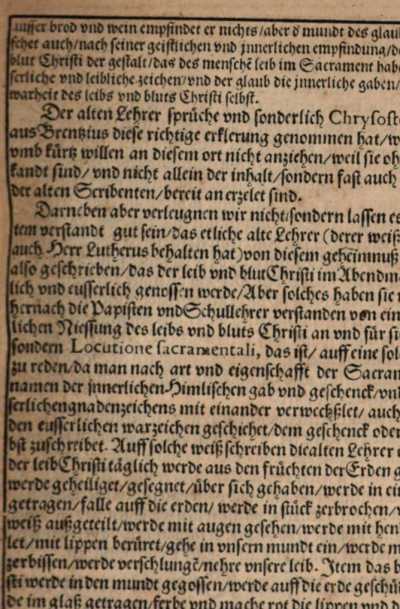 ausser brod vnd wein empfindet er nichts/aber d mundt des glau
sehet auch/nach seiner geistlichen vnd jnnerlichen empfindung/d
blut Christi der gestalt/das des menschē leib im Sacrament hab
serliche vnd leibliche zeichen/vnd der glaub die jnnerliche gaben/
warheit des leibs vnd bluts Christi selbst.
Der alten Lehrer sprüche vnd sonderlich Chrysost
aus Brentzius diese richtige erklerung genommen hat/w
vmb kürtz willen an diesem ort nicht anziehen/weil sie oh
kandt sind/vnd nicht allein der inhalt/sondern fast auch
der alten Scribenten/bereit an erzelet sind.
Darneben aber verleugnen wir nicht/sondern lassen es
tem verstandt gut sein/das etliche alte Lehrer (derer weiß
auch Herr Lutherus behalten hat) von diesem geheimnuß
also geschrieben/das der leib vnd blut Christi im Abendm
lich vnd eusserlich genossen werde/Aber solches haben sie n
hernach die Papisten vnd Schullehrer verstanden von ein
lichen Niessung des leibs vnd bluts Christi an vnd für si
sondern Locutione sacramentali, das ist/auff eine sol
zu reden/da man nach art vnd eigenschafft der Sacram
namen der jnnerlichen Himlischen gab vnd geschenck/vn
serlichen gnadenzeichens mit einander verwechßlet/auch
den eusserlichen warzeichen geschiehet/dem geschenck oder
bst zuschreibet. Auff solche weiß schreiben die alten Lehrer
der leib Christi täglich werde aus den früchten der Erden g
werde geheiliget/gesegnet/über sich gehaben/werde in ei
getragen/falle auff die erden/werde in stück zerbrochen/w
weiß außgeteilt/werde mit augen gesehen/werde mit hen
let/mit lippen berüret/gehe in vnsern mundt ein/werde m
zerbissen/werde verschlungē/nehre vnsere leib. Item das b
sti werde in den mundt gegossen/werde auff die erde geschü
de im glaß getragen/ferbe vnd mache rot die lippen vnd